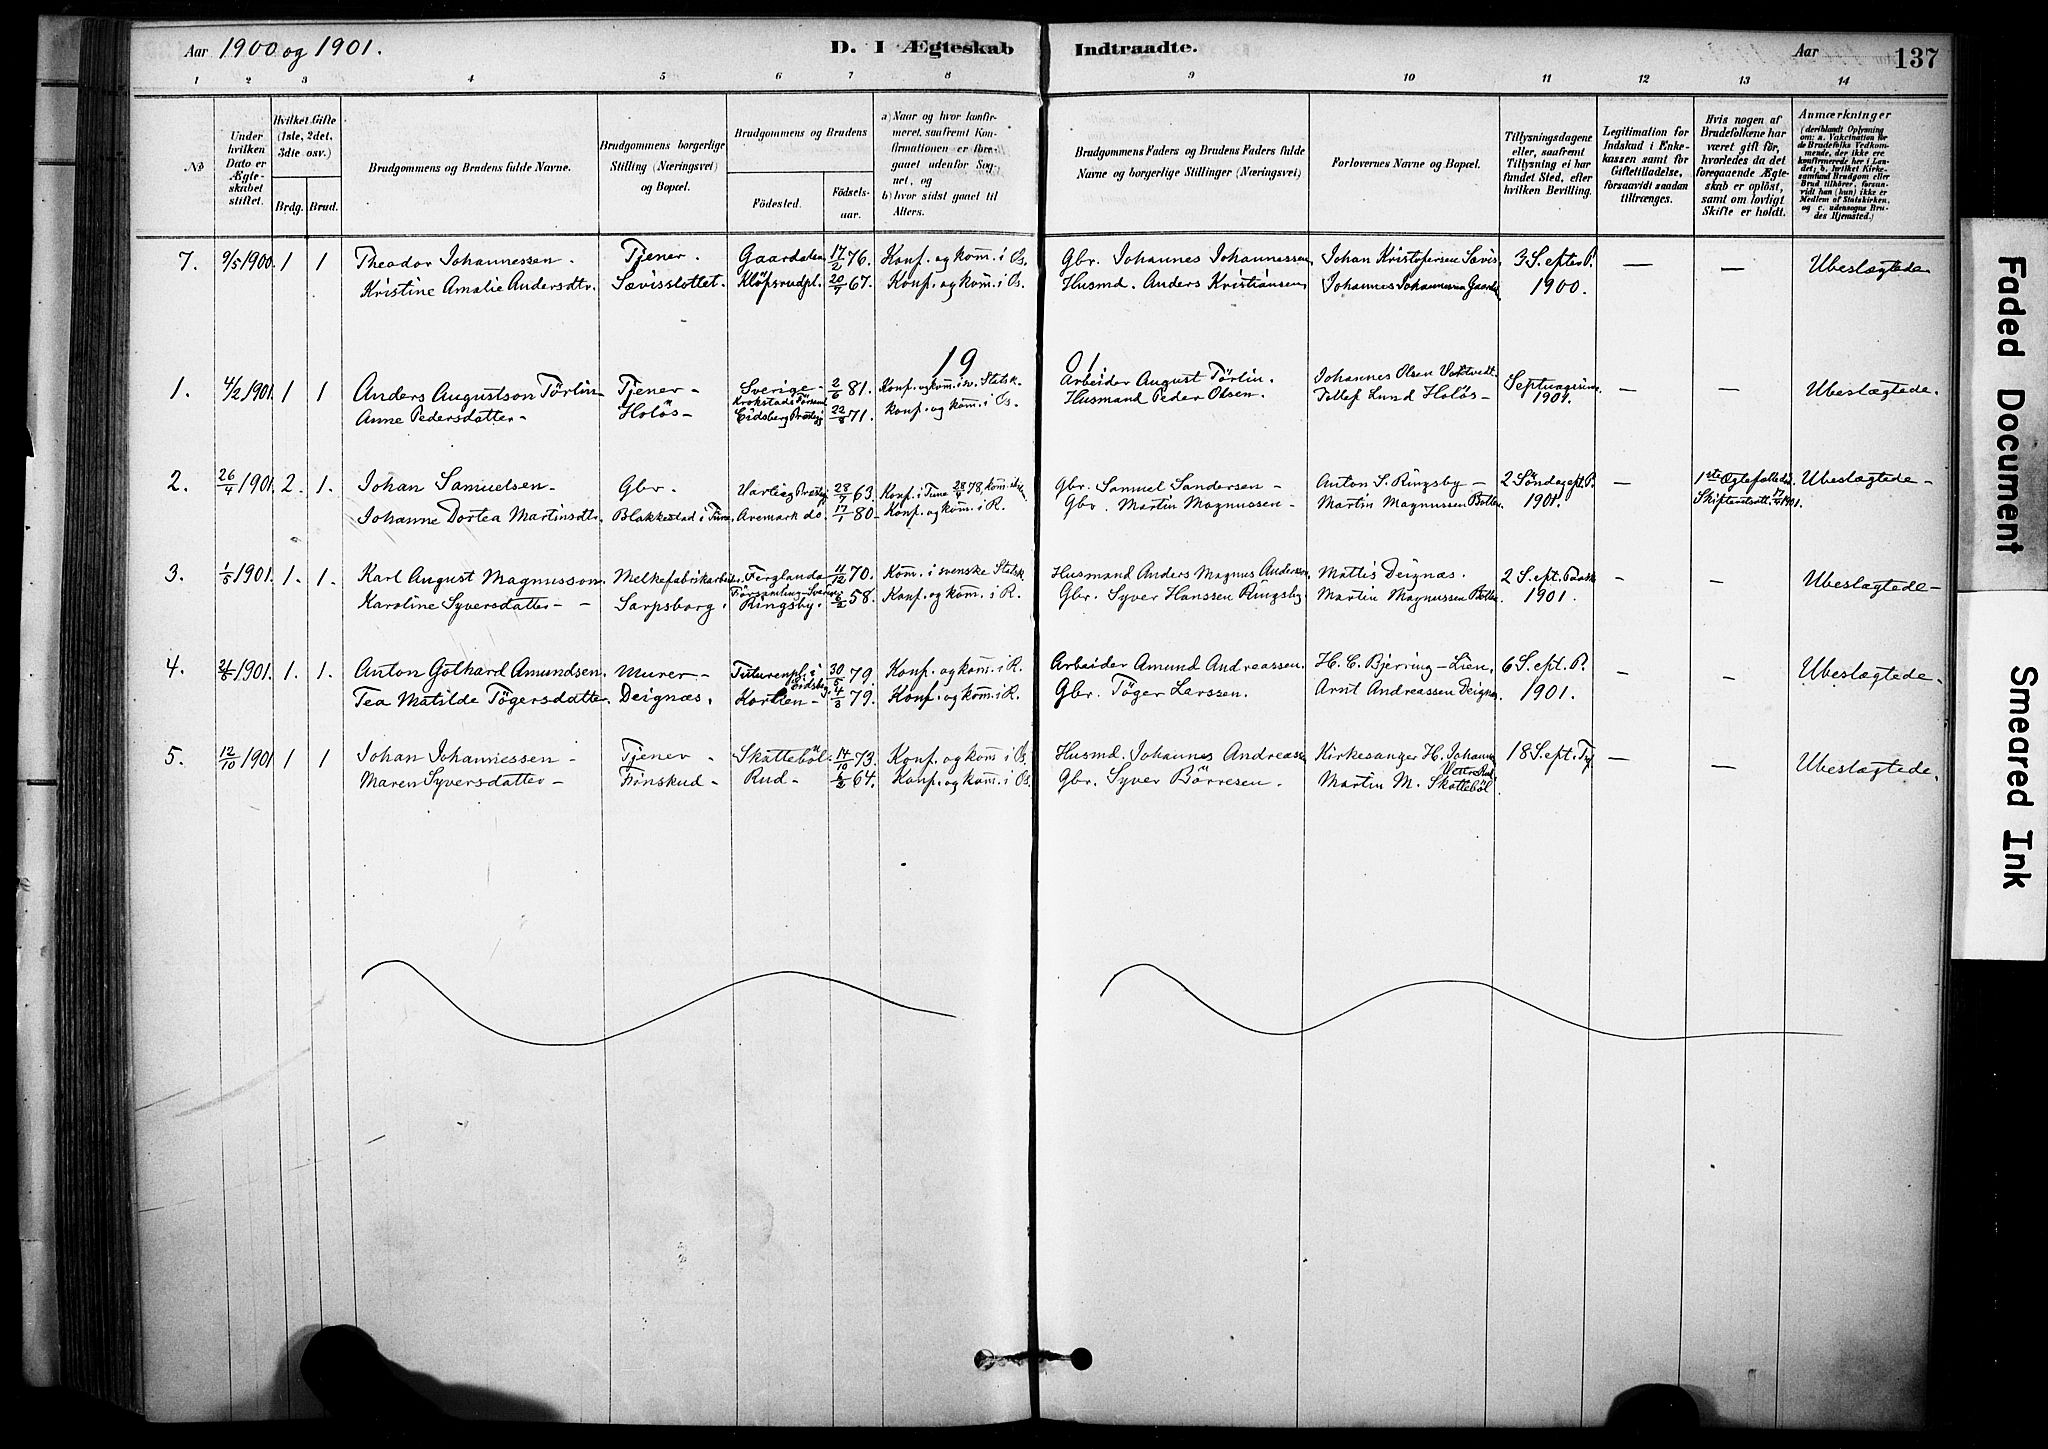 Aar 1900 og 1901.
D. I Ægteskab Indtraadte.
Aar 137
1 2 3 4 5 6 7 8 9 10 11 12 13 14
No
Under hvilken Dato er Ægteskabet stiftet.
Hvilket Gifte (1ste, 2det, 3die osv.)
Brdg. Brud.
Brudgommens og Brudens fulde Navne.
Brudgommens borgerlige Stilling (Næringsvei) og Bopæl.
Brudgommens og Brudens
Födested. Födselsaar.
a) Naar og hvor konfirmeret, saafremt Konfirmationen er foregaaet udenfor Sognet, og
b) hvor sidst gaaet til Alters.
Brudgommens Faders og Brudens Faders fulde Navne og borgerlige Stillinger (Næringsvei)
Forlovernes Navne og Bopæl.
Tillysningsdagene eller, saafremt Tillysning ei har fundet Sted, efter hvilken Bevilling.
Legitimation for Indskud i Enkekassen samt for Giftetilladelse, forsaavidt saadan tiltrænges.
Hvis nogen af Brudefolkene har været gift før, hvorledes da det foregaaende Ægteskab er oplöst, samt om lovligt Skifte er holdt.
Anmærkninger
(deriblandt Oplysning om: a. Vakcination for de Brudefolks Vedkommende, der ikke ere konfirmerede her i Landet; b. hvilket Kirkesamfund Brudgom eller Brud tilhörer, forsaavidt han (hun) ikke er Medlem af Statskirken, og c. udensogns Brudes Hjemsted.)
7. 9/5 1900 1 1 Theodor Johannessen. Tjener. Gaardalen 17/2 76. Konf. og kom̄. i Øs. Gbr. Johannes Johannessen Johan Kristofersen Sævis 3 S. efter P. — — Ubeslægtede
Kristine Amalie Andersdtr. Sævisslottet. Klöfsrudpl. 20/7 67. Konf. og kom̄. i Øs. Husmd. Anders Kristiansen Johannes Johannessen 1900.
1901
1. 4/2 1901 1 1 Anders Augustson Törlin Tjener Sverige 2/6 81. Konf. og kom̄. i sv. Statsk. Arbeider August Törlin. Johannes Olsen — — Ubeslægtede.
Krokstads
Anne Pedersdatter Holös Eidsberg 22/8 71. Konf. og kom̄. i Øs. Husmand Peder Olsen. Lund Holös 1901.
2. 26/4 1901 2. 1. Johan Samuelsen Gbr. 28/7 63 Konf. i Tune 78. Gbr. Samuel Sandersen Anton S. Ringsby 2 Söndag ept. P. 1ste Ubeslægtede
Johanne Dortea Martinsdtr. Blakkestad i Tune. Aremark do 17/1 80 Konf. og kom̄. i R. Gbr. Martin Magnussen Martin Magnussen 1901. 1901.
3. 1/5 1901. 1. 1. Karl August Magnusson Melkefabrikarbeid. Ferglanda 11/12 70. Kom̄. i svenske Statsk Husmand Anders Magnus Anderson Mattis Deignæs. 2 S. ept. Paask — — Ubeslægtede
Församling Sverige
Karoline Syversdatter Sarpsborg. Ringsby. 6/2 58. Konf. og kom̄. i R. Gbr. Syver Hanssen Ringsby Martin Magnussen 1901.
4. 24/5 1901. 1. 1. Anton Gothard Amundsen. Murer 30/5 79. Konf. og kom̄. i R. Arbeider Amund Andreassen. H. C. Bjerring Lien. 6 S. ept. P. — — Ubeslægtede
Eidsbg
Tea Matilde Tögersdatter Deignæs. 4/3 79. Konf. og kom̄. i R. Gbr. Töger Larssen. Arnt Andreassen Deignæs 1901.
5. 12/10 1901 1 1 Johan Johannessen Tjener Skatteböl 14/10 73. Konf. og kom̄ i Øs. Husmd. Johannes Andreassen Kirkesanger H. 18 S. ept. — — Ubeslægtede.
Maren Syversdatter Finskud Rud 64. Konf. og kom̄. i Øs. Gbr. Syver Börresen. Martin M. Skatteböl
Faded Document
Smeared Ink